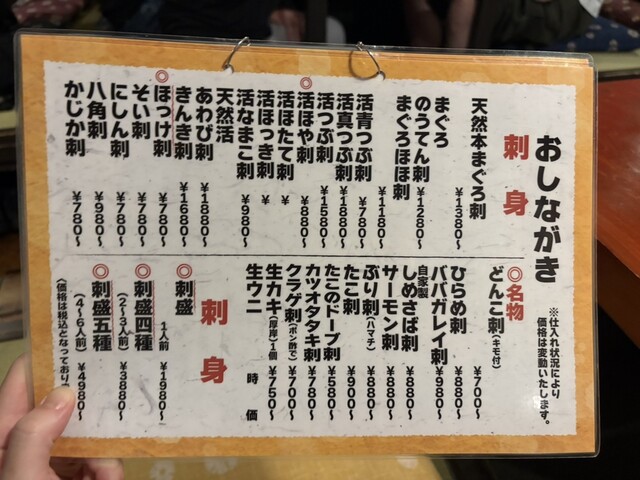 おしながき
※仕入れ状況により
価格は変動いたします。
刺身
天然本まぐろ刺 ¥1380〜
まぐろ
のうてん刺 ¥1280〜
まぐろほほ刺 ¥1180〜
活青つぶ刺 ¥780〜
活真つぶ刺 ¥1880〜
活つぶ刺 ¥1580〜
◎活ほや刺 ¥880〜
活ほたて刺 ¥
活ほっき刺 ¥
活なまこ刺 ¥980〜
天然活
あわび刺 ¥1880〜
きんき刺 ¥1680〜
◎ほっけ刺 ¥780〜
そい刺 ¥780〜
にしん刺 ¥780〜
八角刺 ¥980〜
かじか刺 ¥780〜
◎名物
どんこ刺(キモ付) ¥700〜
ひらめ刺 ¥880〜
ババガレイ刺 ¥980〜
自家製
しめさば刺 ¥880〜
サーモン刺 ¥880〜
ぶり刺(ハマチ) ¥880〜
たこ刺 ¥900〜
たこのドーブ刺 ¥580〜
カツオタタキ刺 ¥780〜
クラゲ刺(ポン酢で) ¥700〜
生カキ(厚岸)1個 ¥750〜
生ウニ 時価
刺身
◎刺盛 1人前 ¥1980〜
◎刺盛四種(2〜3人前) ¥3880〜
◎刺盛五種(4〜6人前) ¥4980〜
(価格は税込となっており